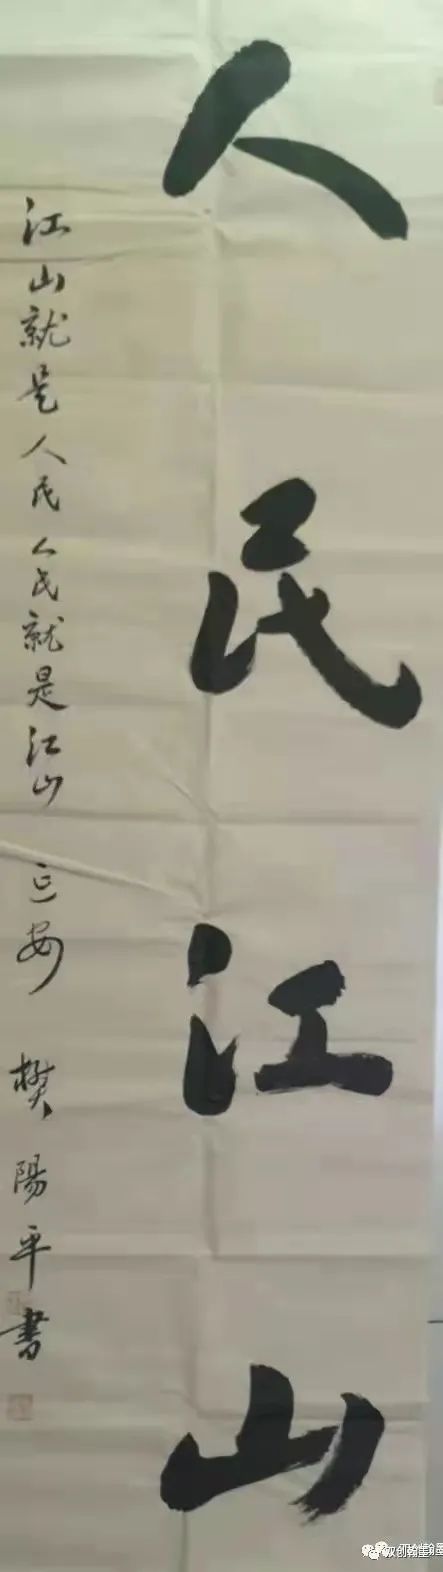 人民江山
江山就是人民人民就是江山 延安 樊陽平書
双创翰墨